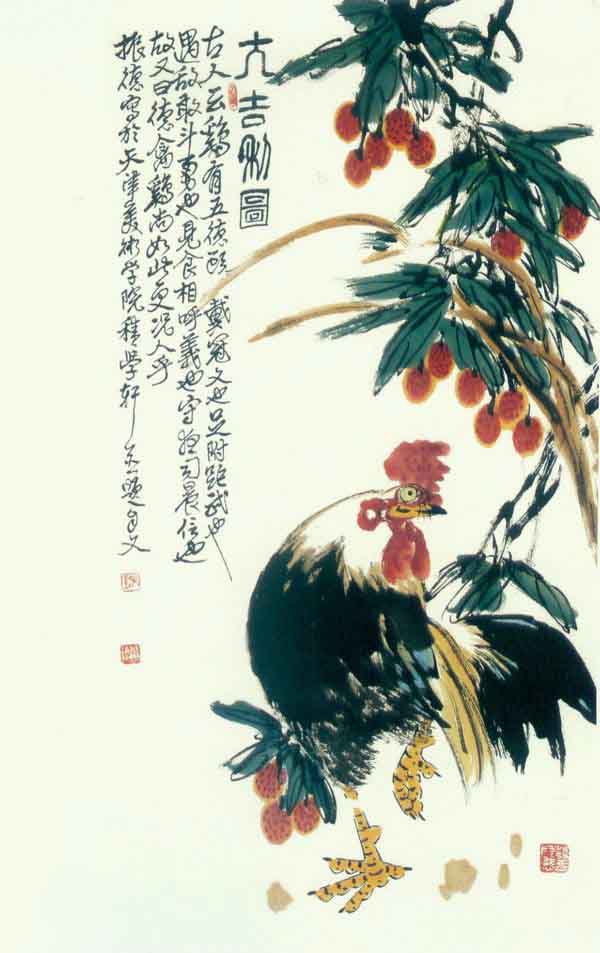 大吉利圖
古人云鷄有五德頭戴冠文也足附距武也
遇敌敢斗勇也見食相呼義也守夜司晨信也
故又曰德禽鷄尚如此更況人乎
振德寫於天津美術学院積学轩